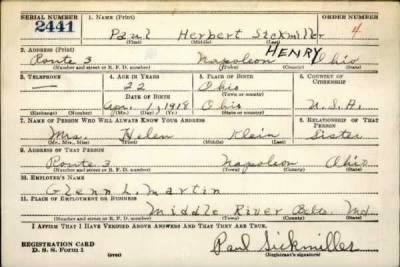 SERIAL NUMBER 1. NAME (Print) ORDER NUMBER
2441 Paul Herbert Sickmiller 4
(First) (Middle) (Last)
HENRY
2. ADDRESS (Print)
Route 3 Napoleon Ohio
(Number and street or R. F. D. number) (Town) (County) (State)
3. TELEPHONE 4. AGE IN YEARS 5. PLACE OF BIRTH 6. COUNTRY OF CITIZENSHIP
— 22 Ohio
DATE OF BIRTH (Town or county)
Apr. 1, 1918 Ohio U.S.A.
(Exchange) (Number) (Mo.) (Day) (Yr.) (State or country)
7. NAME OF PERSON WHO WILL ALWAYS KNOW YOUR ADDRESS 8. RELATIONSHIP OF THAT PERSON
Mrs. Helen Klein Sister
(Mr., Mrs., Miss) (First) (Middle) (Last)
9. ADDRESS OF THAT PERSON
Route 3 Napoleon Ohio
(Number and street or R. F. D. number) (Town) (County) (State)
10. EMPLOYER'S NAME
Glenn L. Martin
11. PLACE OF EMPLOYMENT OR BUSINESS
Middle River Balto. Md.
(Number and street or R. F. D. number) (Town) (County) (State)
I AFFIRM THAT I HAVE VERIFIED ABOVE ANSWERS AND THAT THEY ARE TRUE.
REGISTRATION CARD
D. S. S. Form 1 (over) Paul Sickmiller
(Registrant's signature)